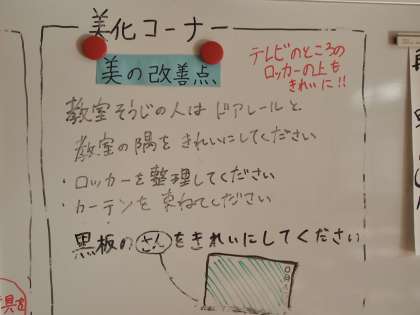 美化コーナー
美の改善点
テレビのところの
ロッカーの上も
きれいに!!
教室そうじの人は ドアレールと
教室の隅をきれいにしてください
・ロッカーを整理してください
・カーテンを束ねてください
黒板のさんをきれいにしてください
具を